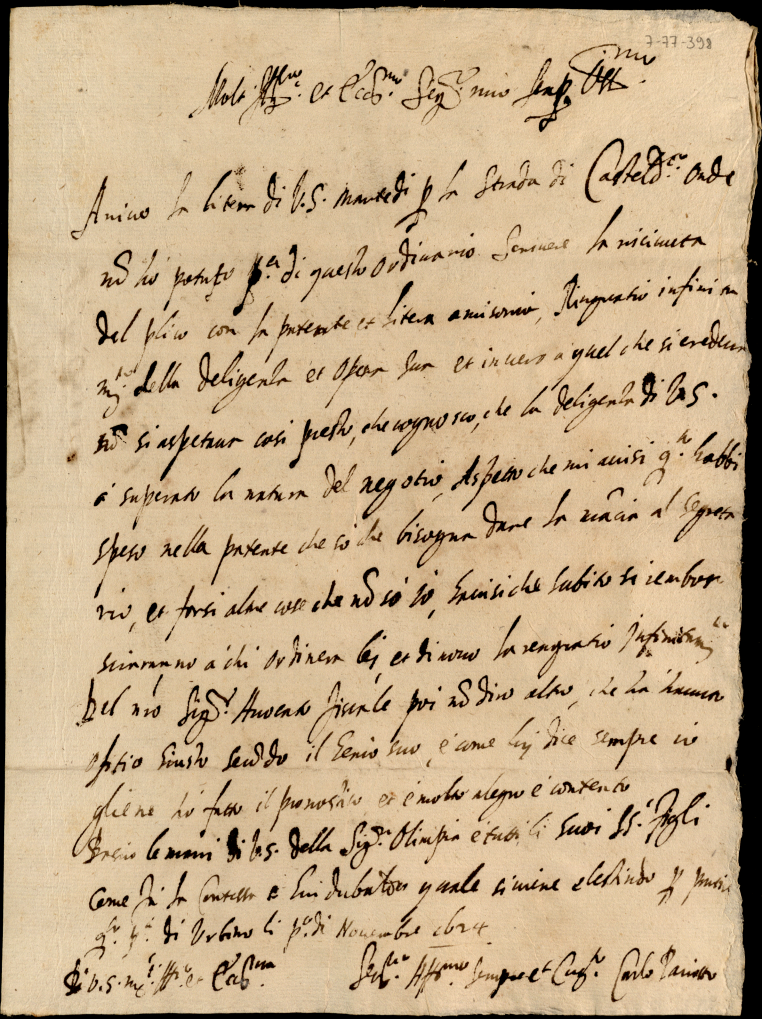 7-77-398
Molt Ill.re et Ecc.mo Sig.r mio semp. oss.mo
Arivò la litera di V.S. martedi p la strada di Casteld.te onde
nō hò potuto p.a di questo ordinario scrivere la riceuuta
del plico con la patente et litera amisoria, Ringratio infinita
m.te della deligenta et opera sua et in uero a quel che si credeua
nō si aspetaua cosi presto, che cognosco, che la deligenta di V.S.
à superato la natura del negotio, Aspetto che mi auisi q.to habbi
speso nella patente che sò che bisogna dare la mācia al segreta
rio, et forsi altre cose che nō sò io, che subito si
a chi ordinera lej et di nouo la rengratio infinitam.te
Del nro Sig.r fiscale poi nō dico altro, che ha hauuto
ofitio giusto secōdo il genio suo, è come luj dice sempre io
gliene hò fatto il pronostico et è molto alegro è contento
Bacio le mani di V.S. della Sig.ra Olimpia è tutti li suoi SS.i figli
come fa la Contessa è quale si uiene
di Urbino li p.o di Novembre
Di V.S. m.to Ill.re et Ecc.ma
Ser.re Aff.mo sempre et Cug.o Carlo